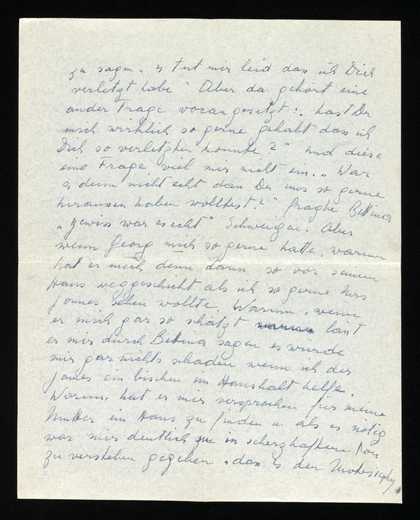 zu sagen. es tut mir leid das ich Dich
verletzt habe" Aber da gehört eine
ander Frage vorangesetzt: hast Du
mich wirklich so gerne gehabt das ich
Dich so verletzten konnte?" und diese
eine Frage viel mir nicht ein. "War
es denn nicht echt dan Du uns so gerne
heraussen haben wolltest?" fragte Bettina
"gewiss war es echt" Schweigen. Aber
wenn Georg mich so gerne hatte, warum
hat er mich denn dann so vor seinem
Haus weggeschickt als ich so gerne
Jones sehen wollte. Warum, wenn
er mich gar so schätzt lässt
er mir durch Bettina sagen es wurde
mir gar nichts schaden wenn ich der
Jones ein bischen im Haushalt helfe.
Warum hat er mir versprochen für meine
Mutter ein Haus zu finden u. als es nötig
war mir deutlich in scherzhaftem Ton
zu verstehen gegeben, das es den